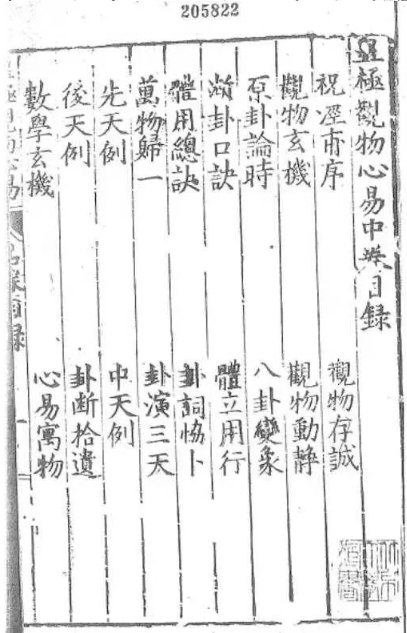 205822
皇極觀物心易中卷目録
祝涇甫序 觀物存誠
觀物玄機 觀物動靜
原卦論時 八卦變象
断卦口訣 體立用行
體用總訣 卦詞恊卜
萬物歸一 卦演三天
先天例 中天例
後天例 卦断拾遺
數學玄機 心易寓物